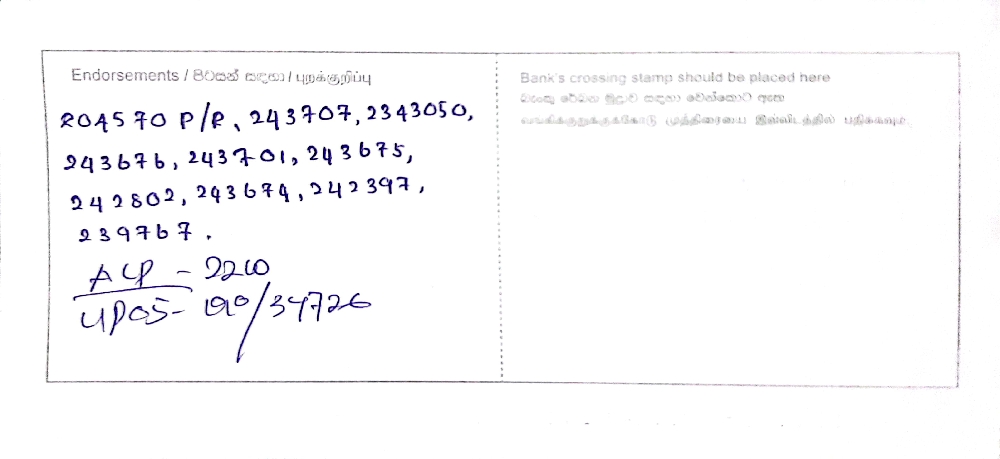 Endorsements / පිටසන් සඳහා / புறக்குறிப்பு
204570 P/P, 243707, 2343050,
243676, 243701, 243675,
242802, 243674, 242397,
239767.
ACP - 2210
UPOS- 190/34726
Bank's crossing stamp should be placed here
බැංකු රේඛන මුද්‍රාව සඳහා වෙන්කොට ඇත
முத்திரையை இவ்விடத்தில் பதிக்கவும்